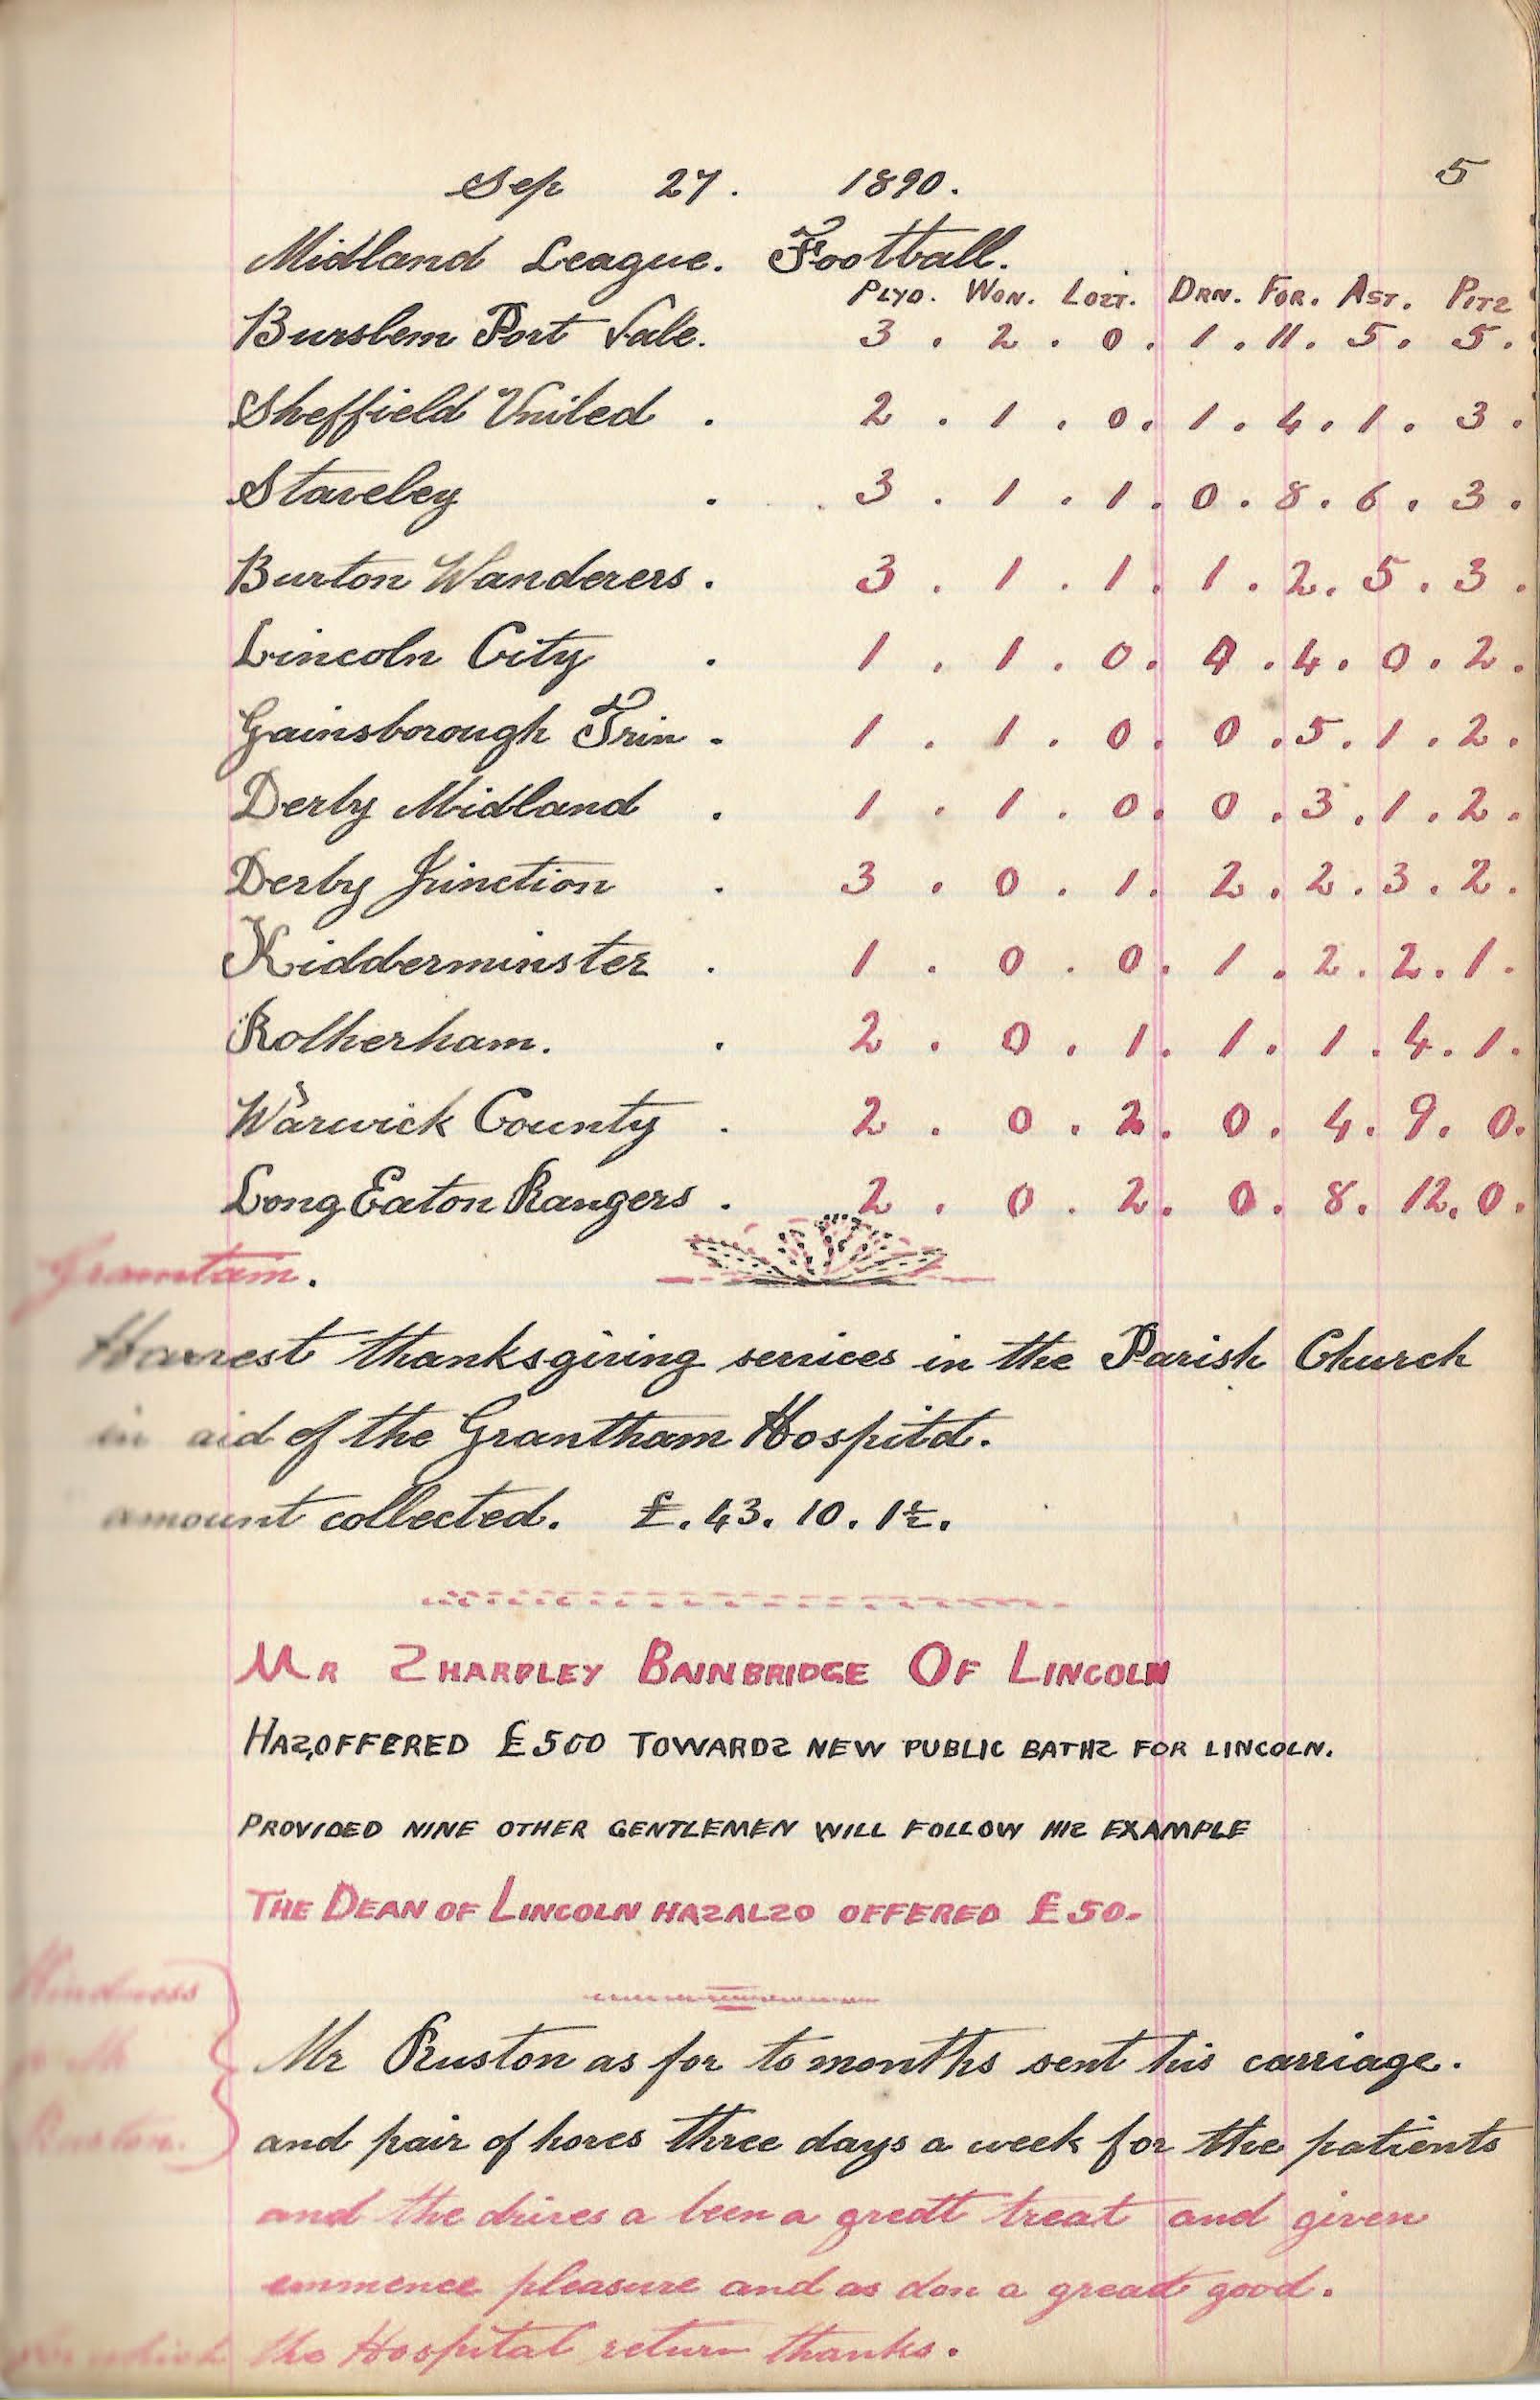 Sep 27. 1890. 5
Midland League. Football.
Plyd. Won. Lost. Drn. For. Ast. Pits
Burslem Port Vale. 3 . 2 . 0 . 1 . 11 . 5 . 5 .
Sheffield United . 2 . 1 . 0 . 1 . 4 . 1 . 3 .
Staveley . 3 . 1 . 1 . 0 . 8 . 6 . 3 .
Burton Wanderers . 3 . 1 . 1 . 1 . 2 . 5 . 3 .
Lincoln City . 1 . 1 . 0 . 0 . 4 . 0 . 2 .
Gainsborough Trin . 1 . 1 . 0 . 0 . 5 . 1 . 2 .
Derby Midland . 1 . 1 . 0 . 0 . 3 . 1 . 2 .
Derby Junction . 3 . 0 . 1 . 2 . 2 . 3 . 2 .
Kidderminster . 1 . 0 . 0 . 1 . 2 . 2 . 1 .
Rotherham. . 2 . 0 . 1 . 1 . 1 . 4 . 1 .
Warwick County . 2 . 0 . 2 . 0 . 4 . 9 . 0 .
Long Eaton Rangers . 2 . 0 . 2 . 0 . 8 . 12 . 0 .
Harvest thanksgiving services in the Parish Church
in aid of the Grantham Hospitd.
amount collected. £. 43. 10. 1½.
MR SHARPLEY BAINBRIDGE OF LINCOLN
HAS,OFFERED £500 TOWARDS NEW PUBLIC BATHS FOR LINCOLN.
PROVIDED NINE OTHER GENTLEMEN WILL FOLLOW HIS EXAMPLE
THE DEAN OF LINCOLN HAS ALSO OFFERED £50-
Kindness
to Mr
Ruston.
Mr Ruston as for to months sent his carriage.
and pair of hores three days a week for the patients
and the drives a been a gredt treat and given
emmence pleasure and as don a gread good.
for which the Hospital return thanks.